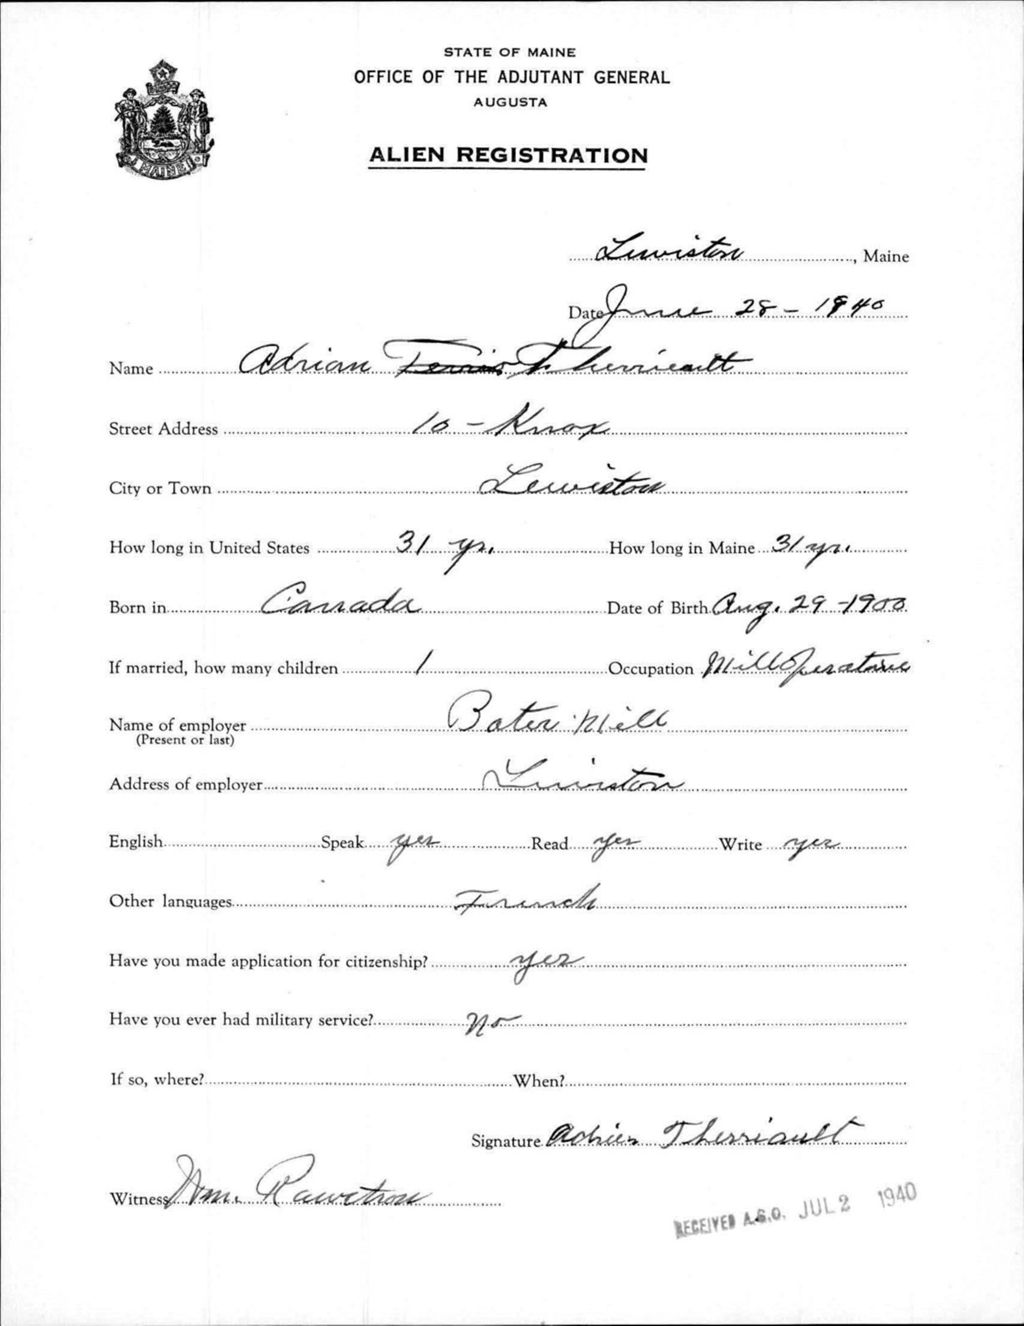 STATE OF MAINE
OFFICE OF THE ADJUTANT GENERAL
AUGUSTA
ALIEN REGISTRATION
MAINE
Lewiston, Maine
Date June 28 - 1940
Name Adrian Therrieault
Street Address 10 - Knox
City or Town Lewiston
How long in United States 31 yr. How long in Maine 31 yr.
Born in Canada Date of Birth Aug. 29 - 1900
If married, how many children 1 Occupation Mill Operative
Name of employer Bates Mill
(Present or last)
Address of employer Lewiston
English Speak yes Read yes Write yes
Other languages French
Have you made application for citizenship? yes
Have you ever had military service? No
If so, where? When?
Signature Adrien Therriault
Witness Wm.
RECEIVED A.G.O. JUL 2 1940